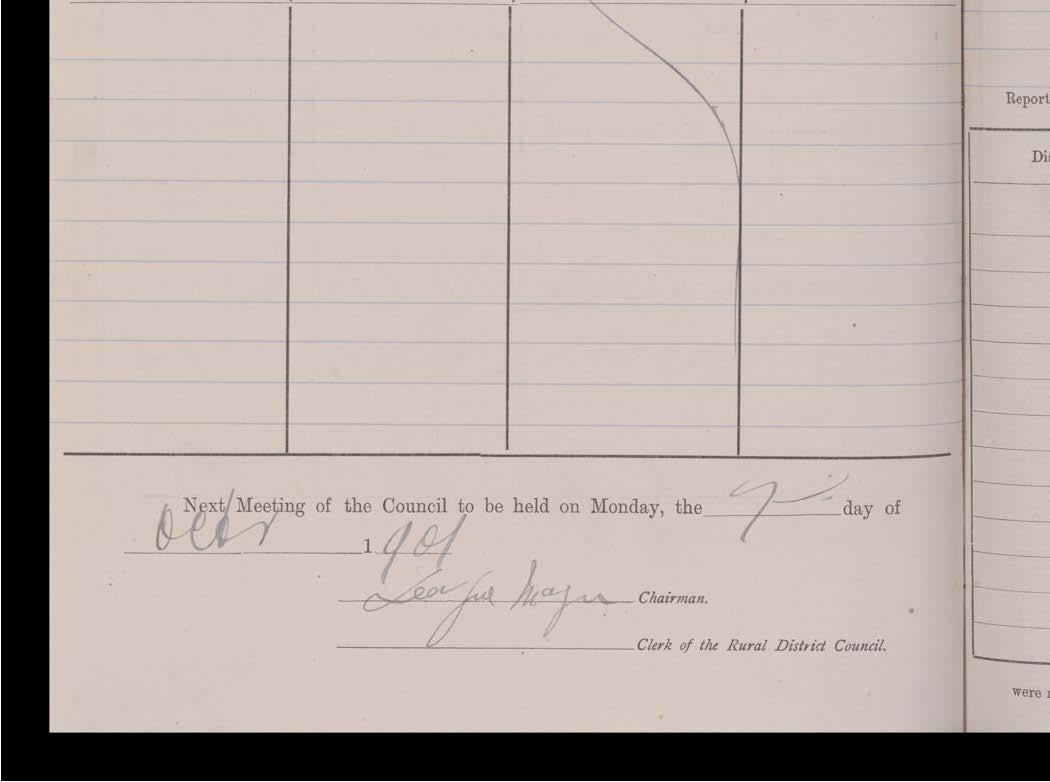 Report
Di
Next Meeting of the Council to be held on Monday, the 7 day of
Octr 1901
George Chairman.
Clerk of the Rural District Council.
were